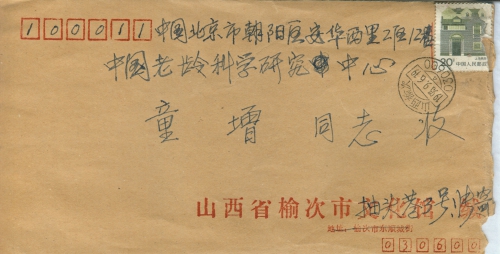 100011 中国北京市朝阳区安华西里二区12楼
中国老龄科学研究中心
童增 同志 收
山西省榆次市
抽头巷3号
030600
20分 中国人民邮政